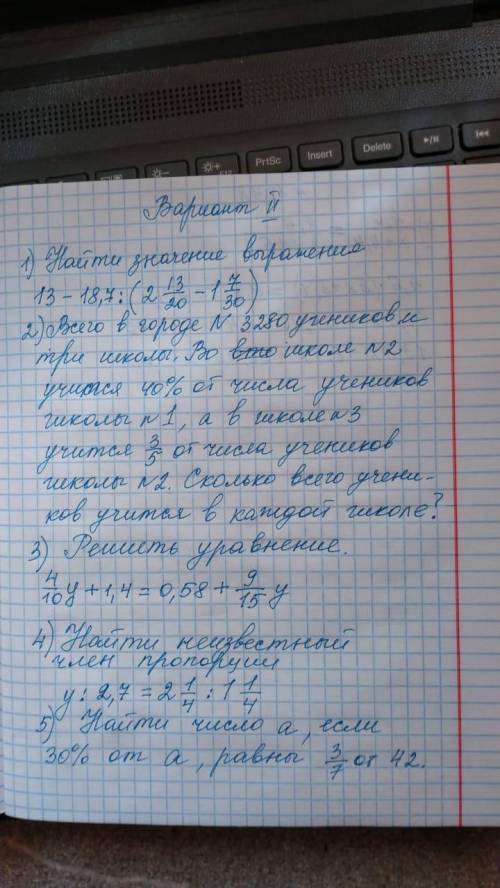 PrtSc Insert Delete
F12
Вариант II
1) Найти значение выражения
13 - 18,7 : (2 13/20 - 1 7/30)
2) Всего в городе N 3280 учеников и
три школы. Во школе №2
учится 40% от числа учеников
школы №1, а в школе №3
учится 3/5 от числа учеников
школы №2. Сколько всего учени-
ков учится в каждой школе?
3) Решить уравнение.
4/10 y + 1,4 = 0,58 + 9/15 y
4) Найти неизвестный
член пропорции
y : 2,7 = 2 1/4 : 1 1/4
5) Найти число a, если
30% от a, равны 3/7 от 42.